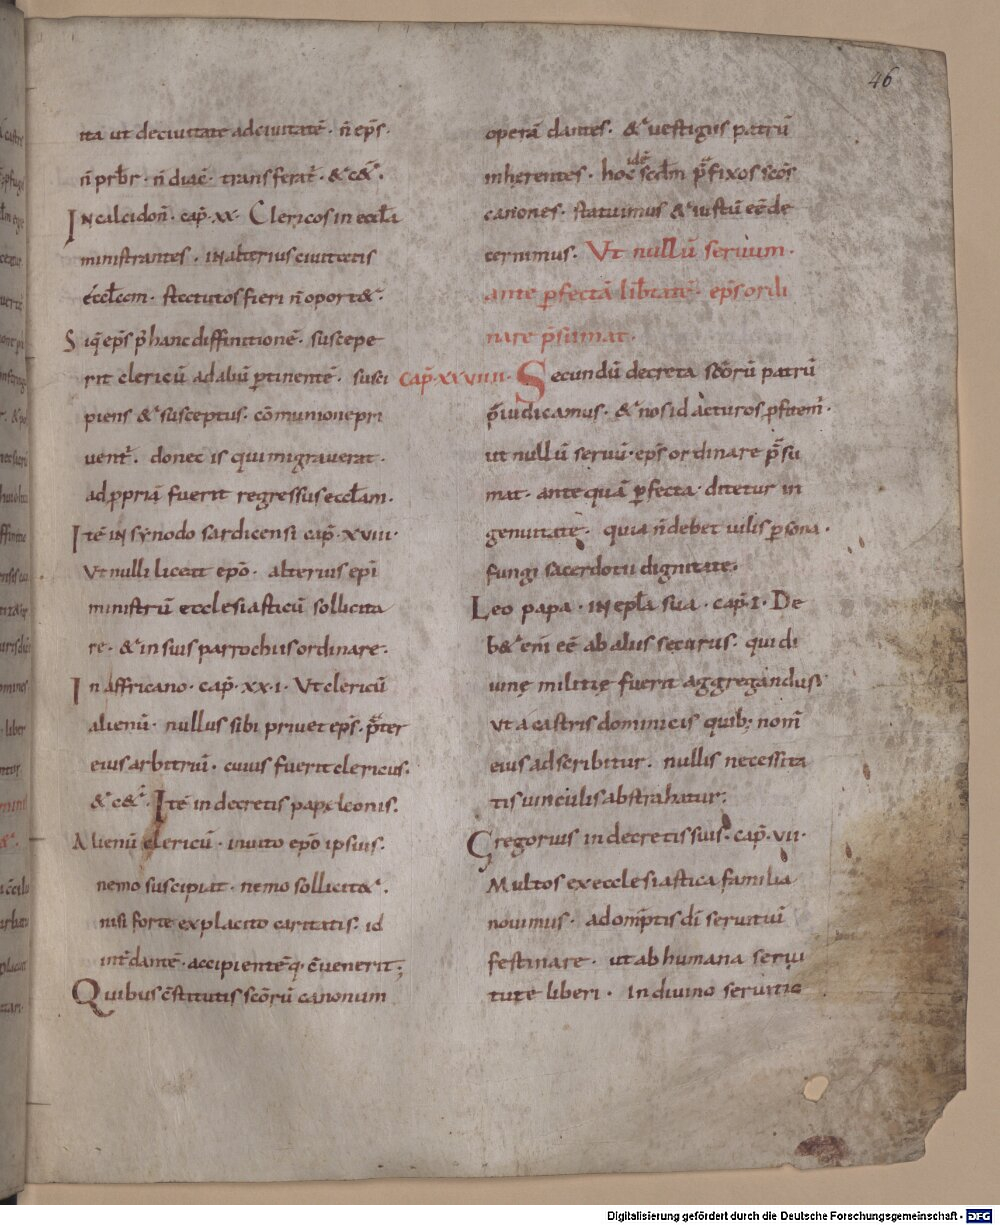 46
ita ut deciuitate adciuitatē · n̄ ep̄s ·
n̄ prb̄r · n̄ diac̄ · transferat᷑ · &c&᷑ ·
INcalcidoñ · cap̄ · xx · Clericos in eccl̄a
ministrantes · INalterius ciuitatis
eccl̄am · statutos fieri n̄ oport& ·
Siq̄ ep̄s p̄ hanc diffinitionē · suscepe
rit clericū adaliū ꝑtinentē · susci
piens & susceptus · cōmunione pri
uent᷑ · donec is qui migrauerat ·
ad ꝓpriā fuerit regressus eccl̄am ·
Itē IN synodo sardicensi cap̄ · xviii ·
Vt nulli liceat ep̄o · alterius ep̄i
ministrū ecclesiasticū sollicita
re · & in suis parrochiis ordinare ·
In affricano · cap̄ · xx · i · Vt clericū
alienū · nullus sibi priuet ep̄s · p̄ter
eius arbitriū · cuius fuerit clericus ·
&c&᷑ · Itē in decretis papę leonis ·
Alienū clericū · inuito ep̄o ipsius ·
nemo suscipiat · nemo sollicit& ·
nisi forte explacito caritatis · id
int᷑ dantē · accipientēq · c̄uenerit ;
Quibus c̄stitutis sc̄orū canonum
operā dantes · & uestigiis patrū
inherentes · hoc idē sc̄dm p̄fixos sc̄os
canones · statuimus & iustū eē de
cernimus · Vt nullū seruum ·
ante ꝑfectā lib̄tatē · ep̄s ordi
nare p̄sumat ·
cap̄ · xxviiii · Secundū decreta sc̄orū patrū
p̄iudicamus · & nos id acturos ꝓfitem᷑ ·
ut nullū seruū · ep̄s ordinare p̄su
mat · ante quā ꝑfecta ditetur in
genuitate · quia n̄ debet uilis ꝑsona ·
fungi sacerdotii dignitate ·
Leo papa · IN epl̄a sua · cap̄ · I · De
b& eni᷑ eē ab aliis securus · qui di
uinę militię fuerit aggregandus ·
Vt a castris dominicis quib; nom̄
eius adscribitur · nullis necessita
tis uinculis abstrahatur ·
Gregorius in decretis suis · cap̄ · vii ·
Multos ex ecclesiastica familia
nouimus · ad om̄ptis dī seruitiū
festinare · ut ab humana serui
tute liberi · In diuino seruitio
Digitalisierung gefördert durch die Deutsche Forschungsgemeinschaft - DFG